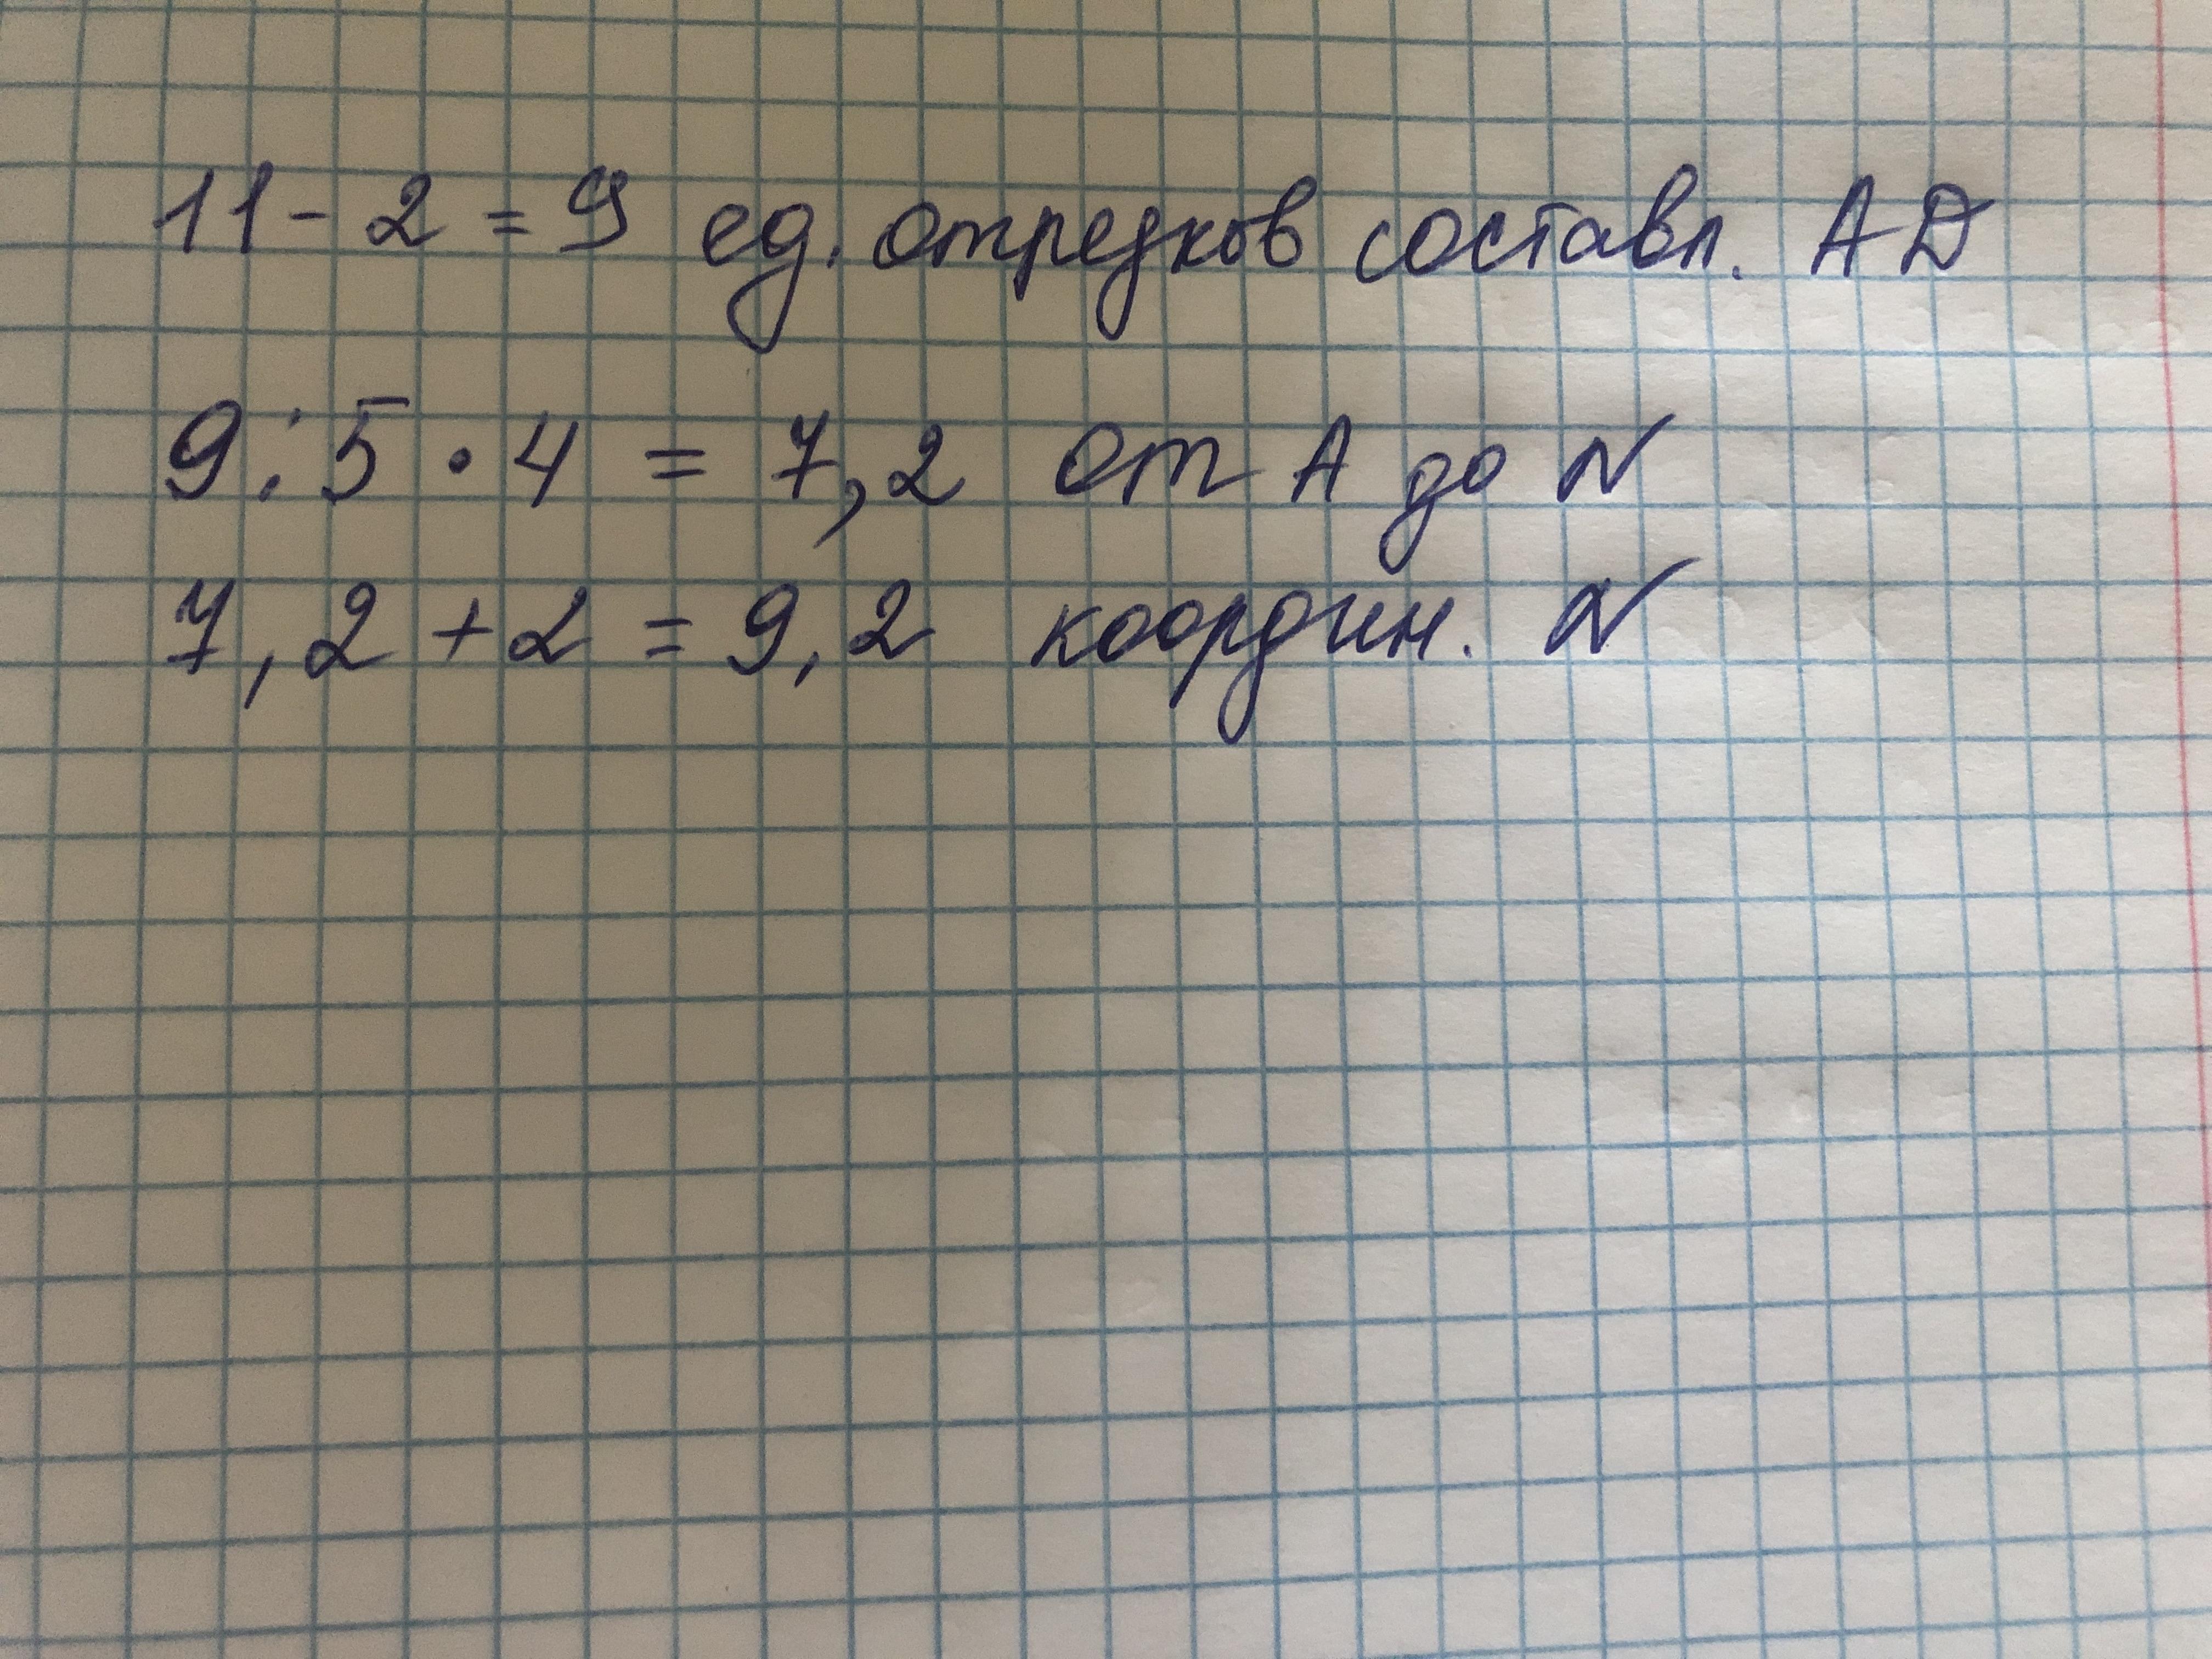 11 - 2 = 9 ед. отрезков составл. AD
9 : 5 · 4 = 7,2 от А до N
7,2 + 2 = 9,2 координ. N